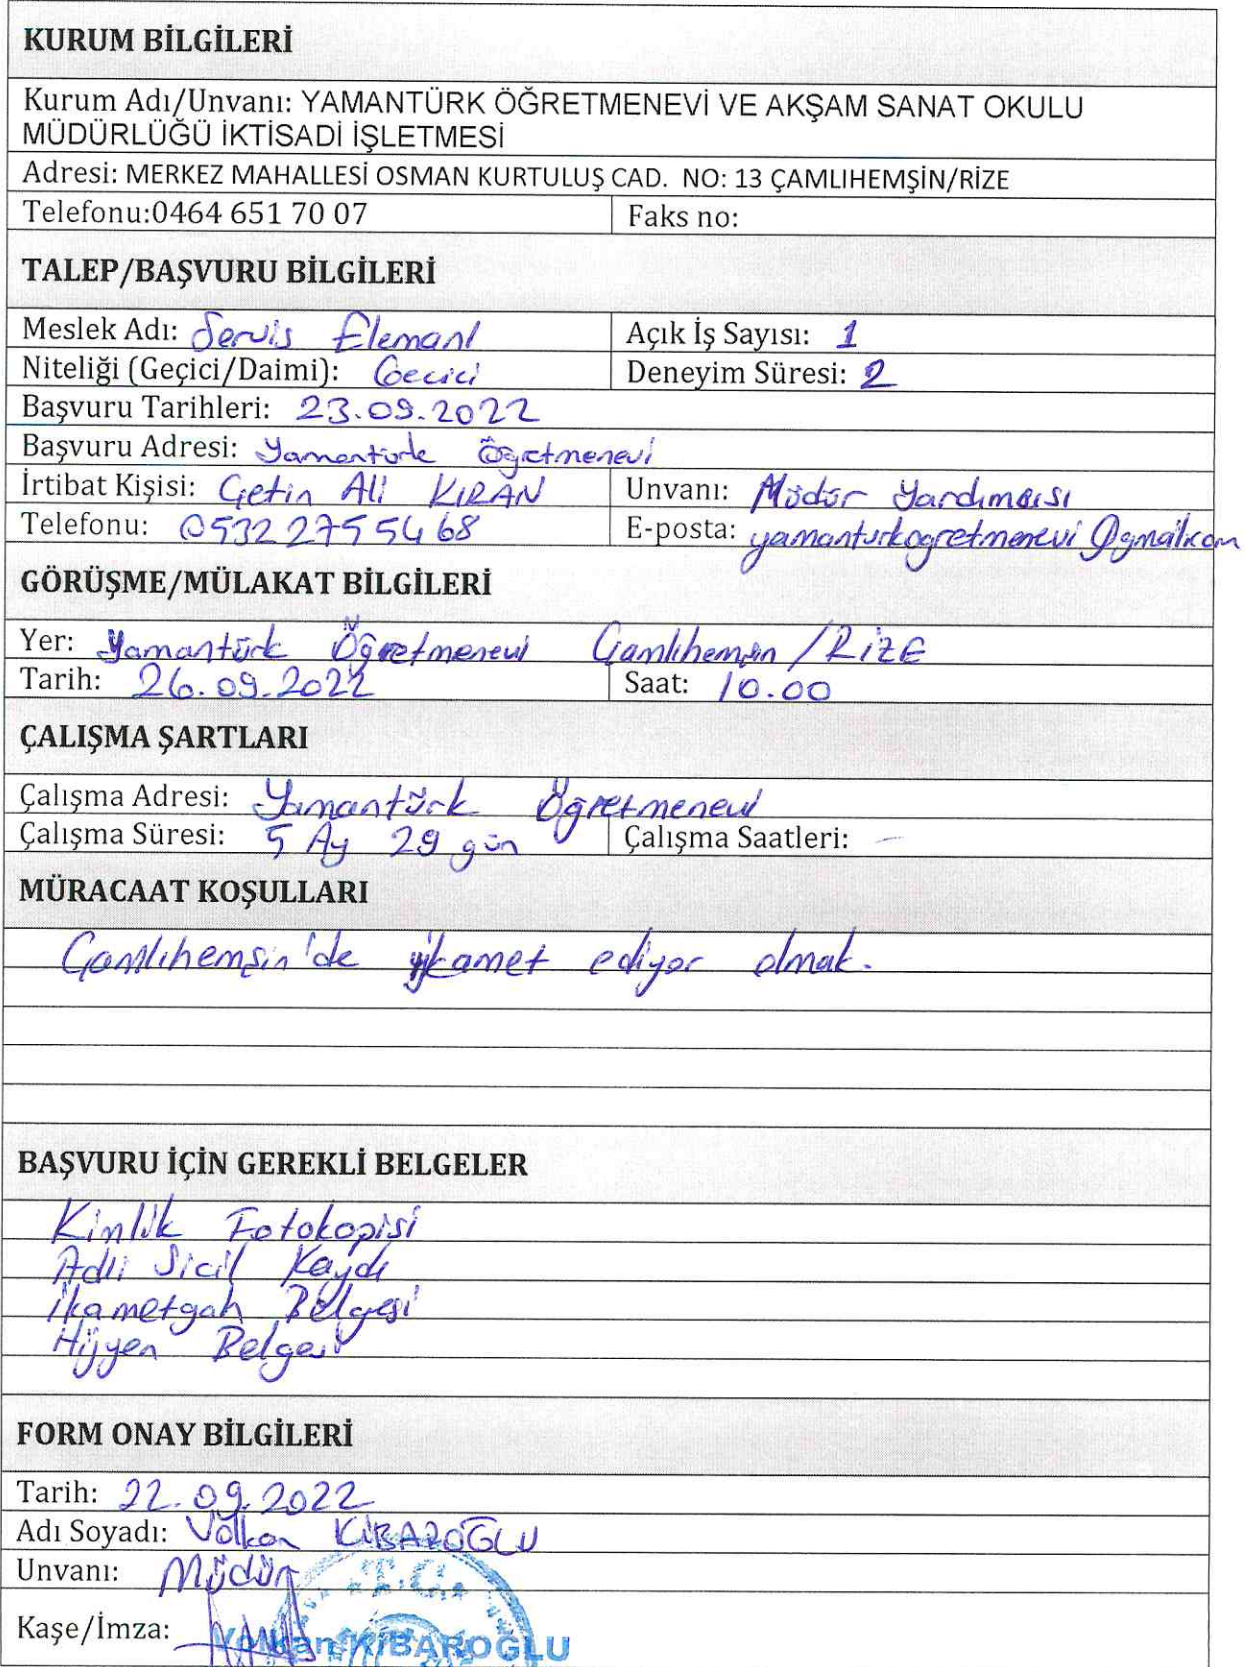 KURUM BİLGİLERİ
Kurum Adı/Unvanı: YAMANTÜRK ÖĞRETMENEVİ VE AKŞAM SANAT OKULU
MÜDÜRLÜĞÜ İKTİSADİ İŞLETMESİ
Adresi: MERKEZ MAHALLESİ OSMAN KURTULUŞ CAD. NO: 13 ÇAMLIHEMŞİN/RİZE
Telefonu:0464 651 70 07 Faks no:
TALEP/BAŞVURU BİLGİLERİ
Meslek Adı: Servis Elemanı Açık İş Sayısı: 1
Niteliği (Geçici/Daimi): Gecici Deneyim Süresi: 2
Başvuru Tarihleri: 23.09.2022
Başvuru Adresi: Yamantürk Öğretmenevi
İrtibat Kişisi: Çetin Ali KIRAN Unvanı: Müdür Yardımcısı
Telefonu: 0532 275 54 68 E-posta: yamanturkogretmenevi@gmail.com
GÖRÜŞME/MÜLAKAT BİLGİLERİ
Yer: Yamantürk Öğretmenevi Çamlıhemşin / RİZE
Tarih: 26.09.2022 Saat: 10.00
ÇALIŞMA ŞARTLARI
Çalışma Adresi: Yamantürk Öğretmenevi
Çalışma Süresi: 5 Ay 29 gün Çalışma Saatleri: -
MÜRACAAT KOŞULLARI
Çamlıhemşin'de ikamet ediyor olmak.
BAŞVURU İÇİN GEREKLİ BELGELER
Kimlik Fotokopisi
Adli Sicil Kaydı
İkametgah Belgesi
Hijyen Belgesi
FORM ONAY BİLGİLERİ
Tarih: 22.09.2022
Adı Soyadı: Volkan KİBAROĞLU
Unvanı: Müdür
T.C.
Kaşe/İmza:
Volkan KİBAROĞLU